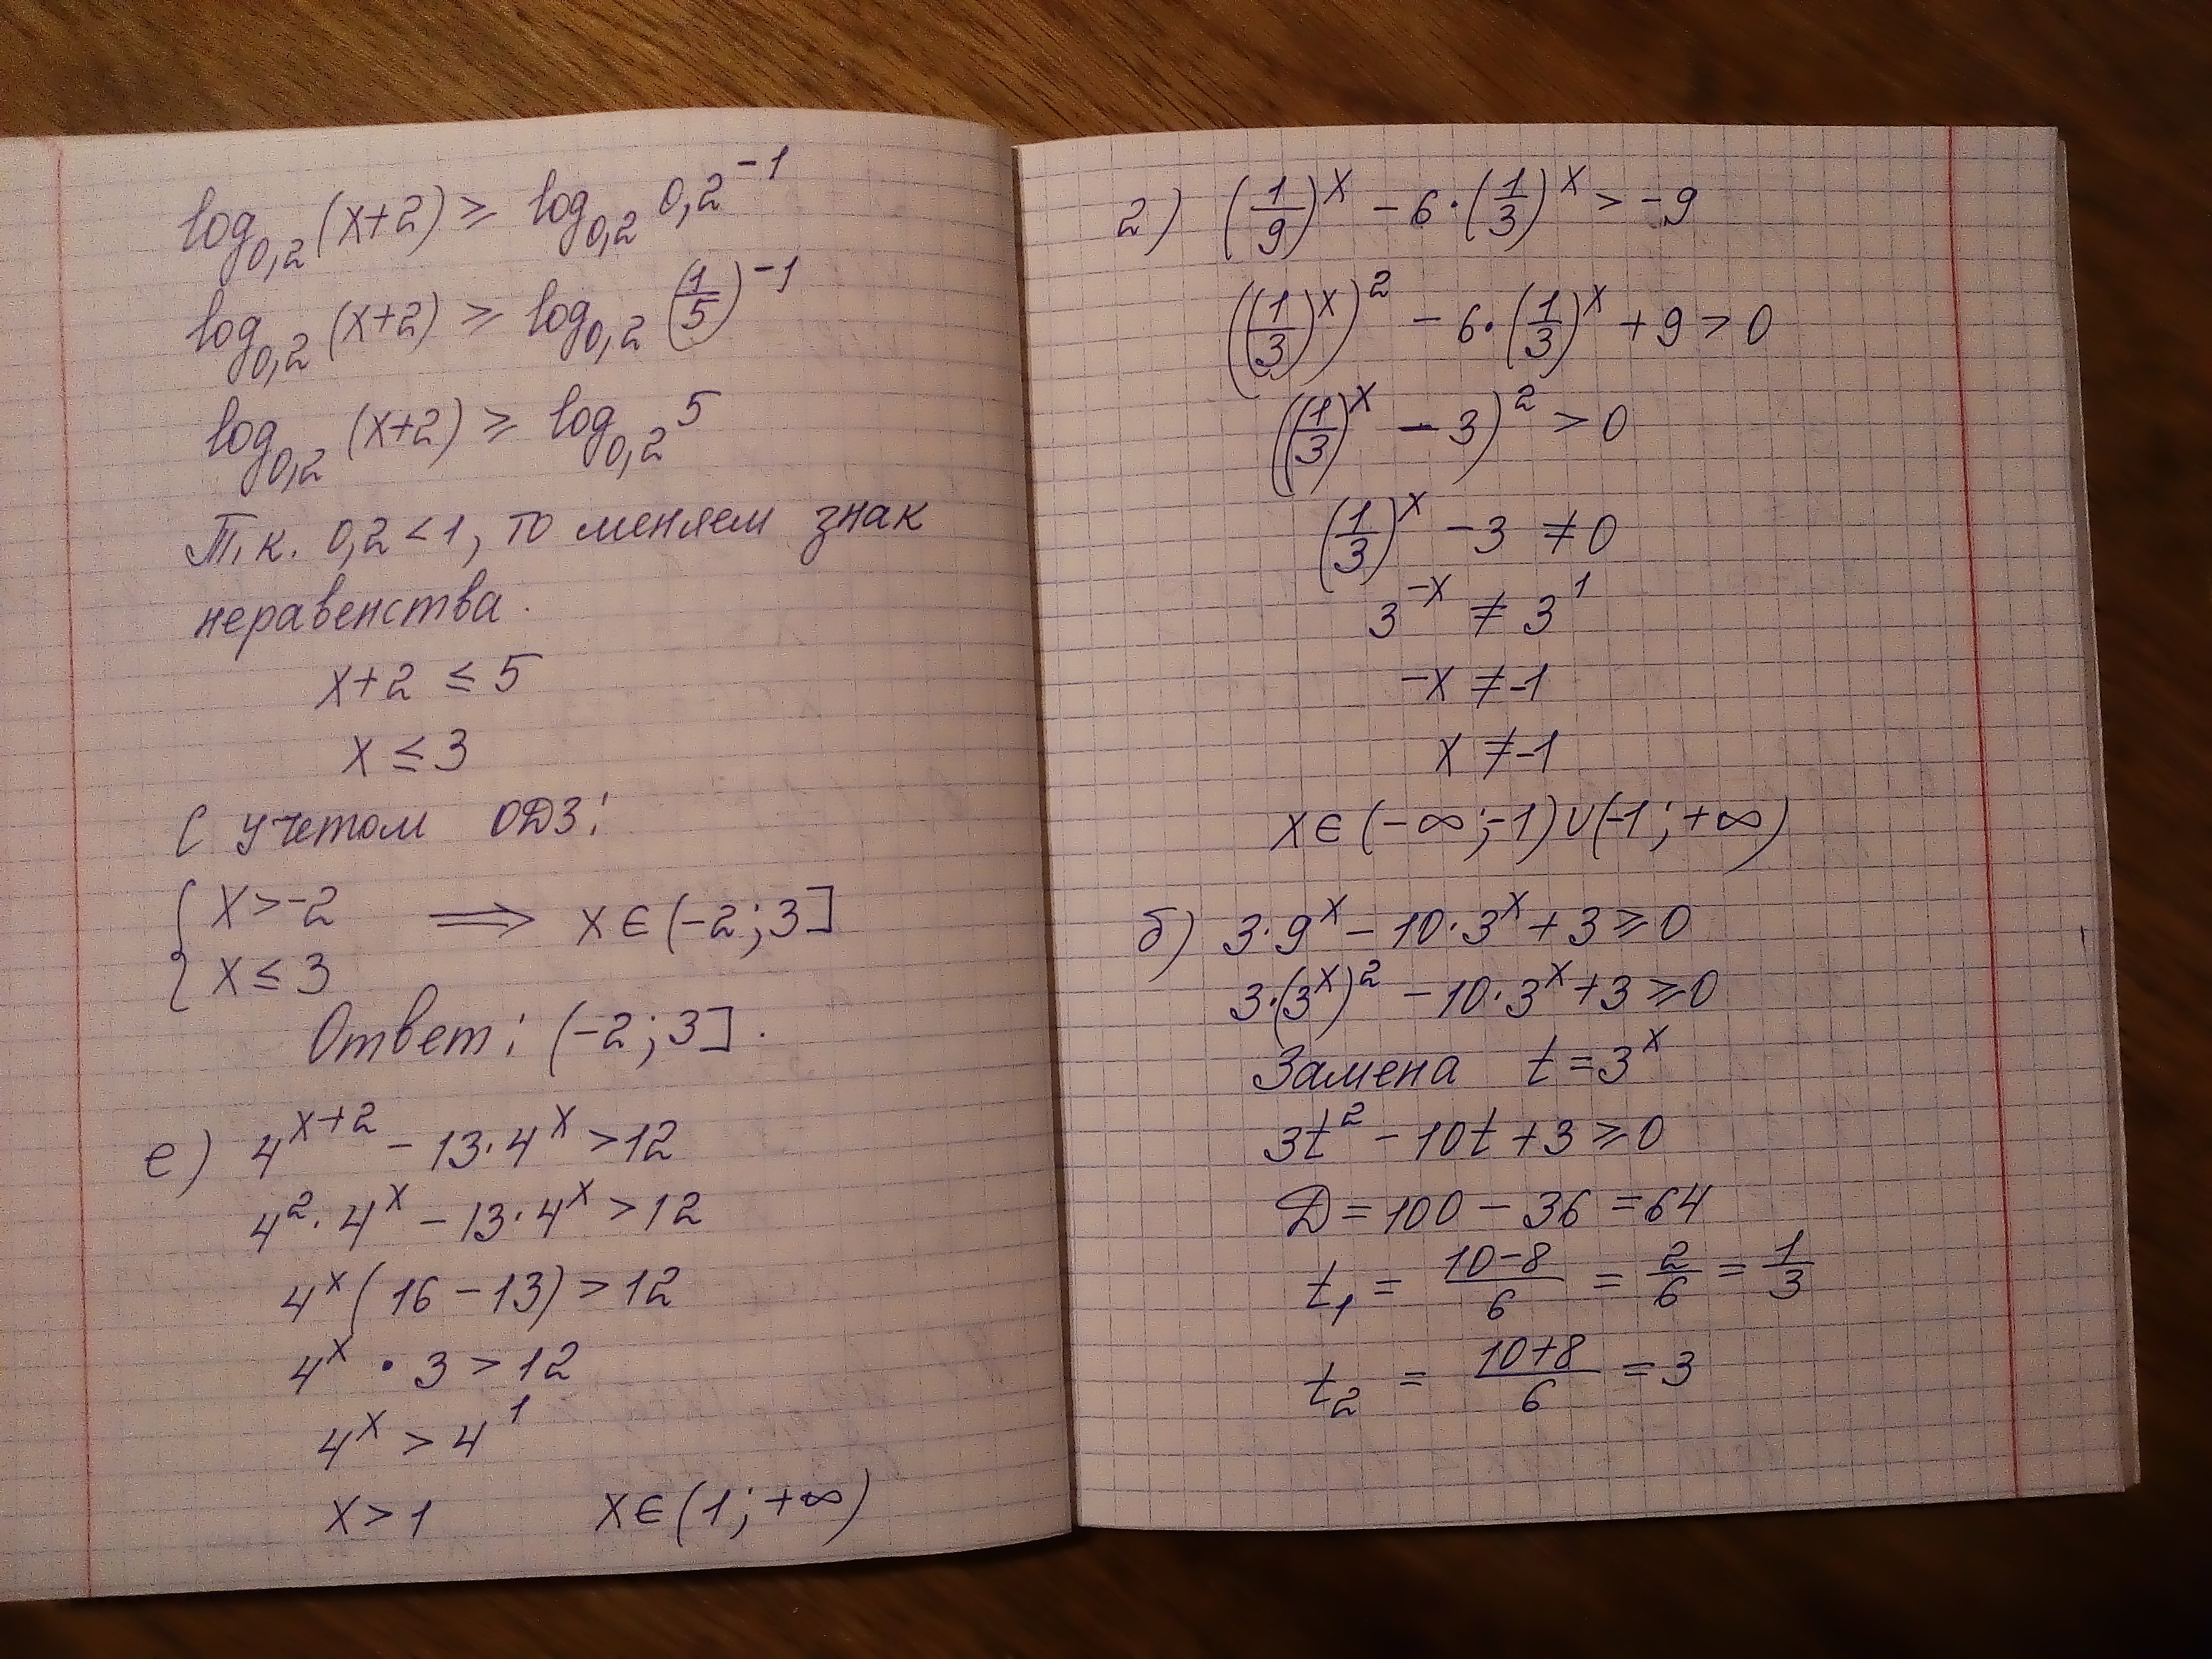 log₀,₂(x+2) ≥ log₀,₂ 0,2⁻¹
log₀,₂(x+2) ≥ log₀,₂ (1/5)⁻¹
log₀,₂(x+2) ≥ log₀,₂ 5
Т.к. 0,2 < 1, то меняем знак
неравенства.
x+2 ≤ 5
x ≤ 3
С учетом ОДЗ:
{ x > -2 ⟹ x ∈ (-2; 3]
{ x ≤ 3
Ответ: (-2; 3].
е) 4ˣ⁺² - 13·4ˣ > 12
4²·4ˣ - 13·4ˣ > 12
4ˣ(16 - 13) > 12
4ˣ · 3 > 12
4ˣ > 4¹
x > 1 x ∈ (1; +∞)
г) (1/9)ˣ - 6·(1/3)ˣ > -9
((1/3)ˣ)² - 6·(1/3)ˣ + 9 > 0
((1/3)ˣ - 3)² > 0
(1/3)ˣ - 3 ≠ 0
3⁻ˣ ≠ 3¹
-x ≠ -1
x ≠ -1
x ∈ (-∞; -1) ∪ (-1; +∞)
б) 3·9ˣ - 10·3ˣ + 3 ≥ 0
3·(3ˣ)² - 10·3ˣ + 3 ≥ 0
Замена t = 3ˣ
3t² - 10t + 3 ≥ 0
D = 100 - 36 = 64
t₁ = (10-8)/6 = 2/6 = 1/3
t₂ = (10+8)/6 = 3